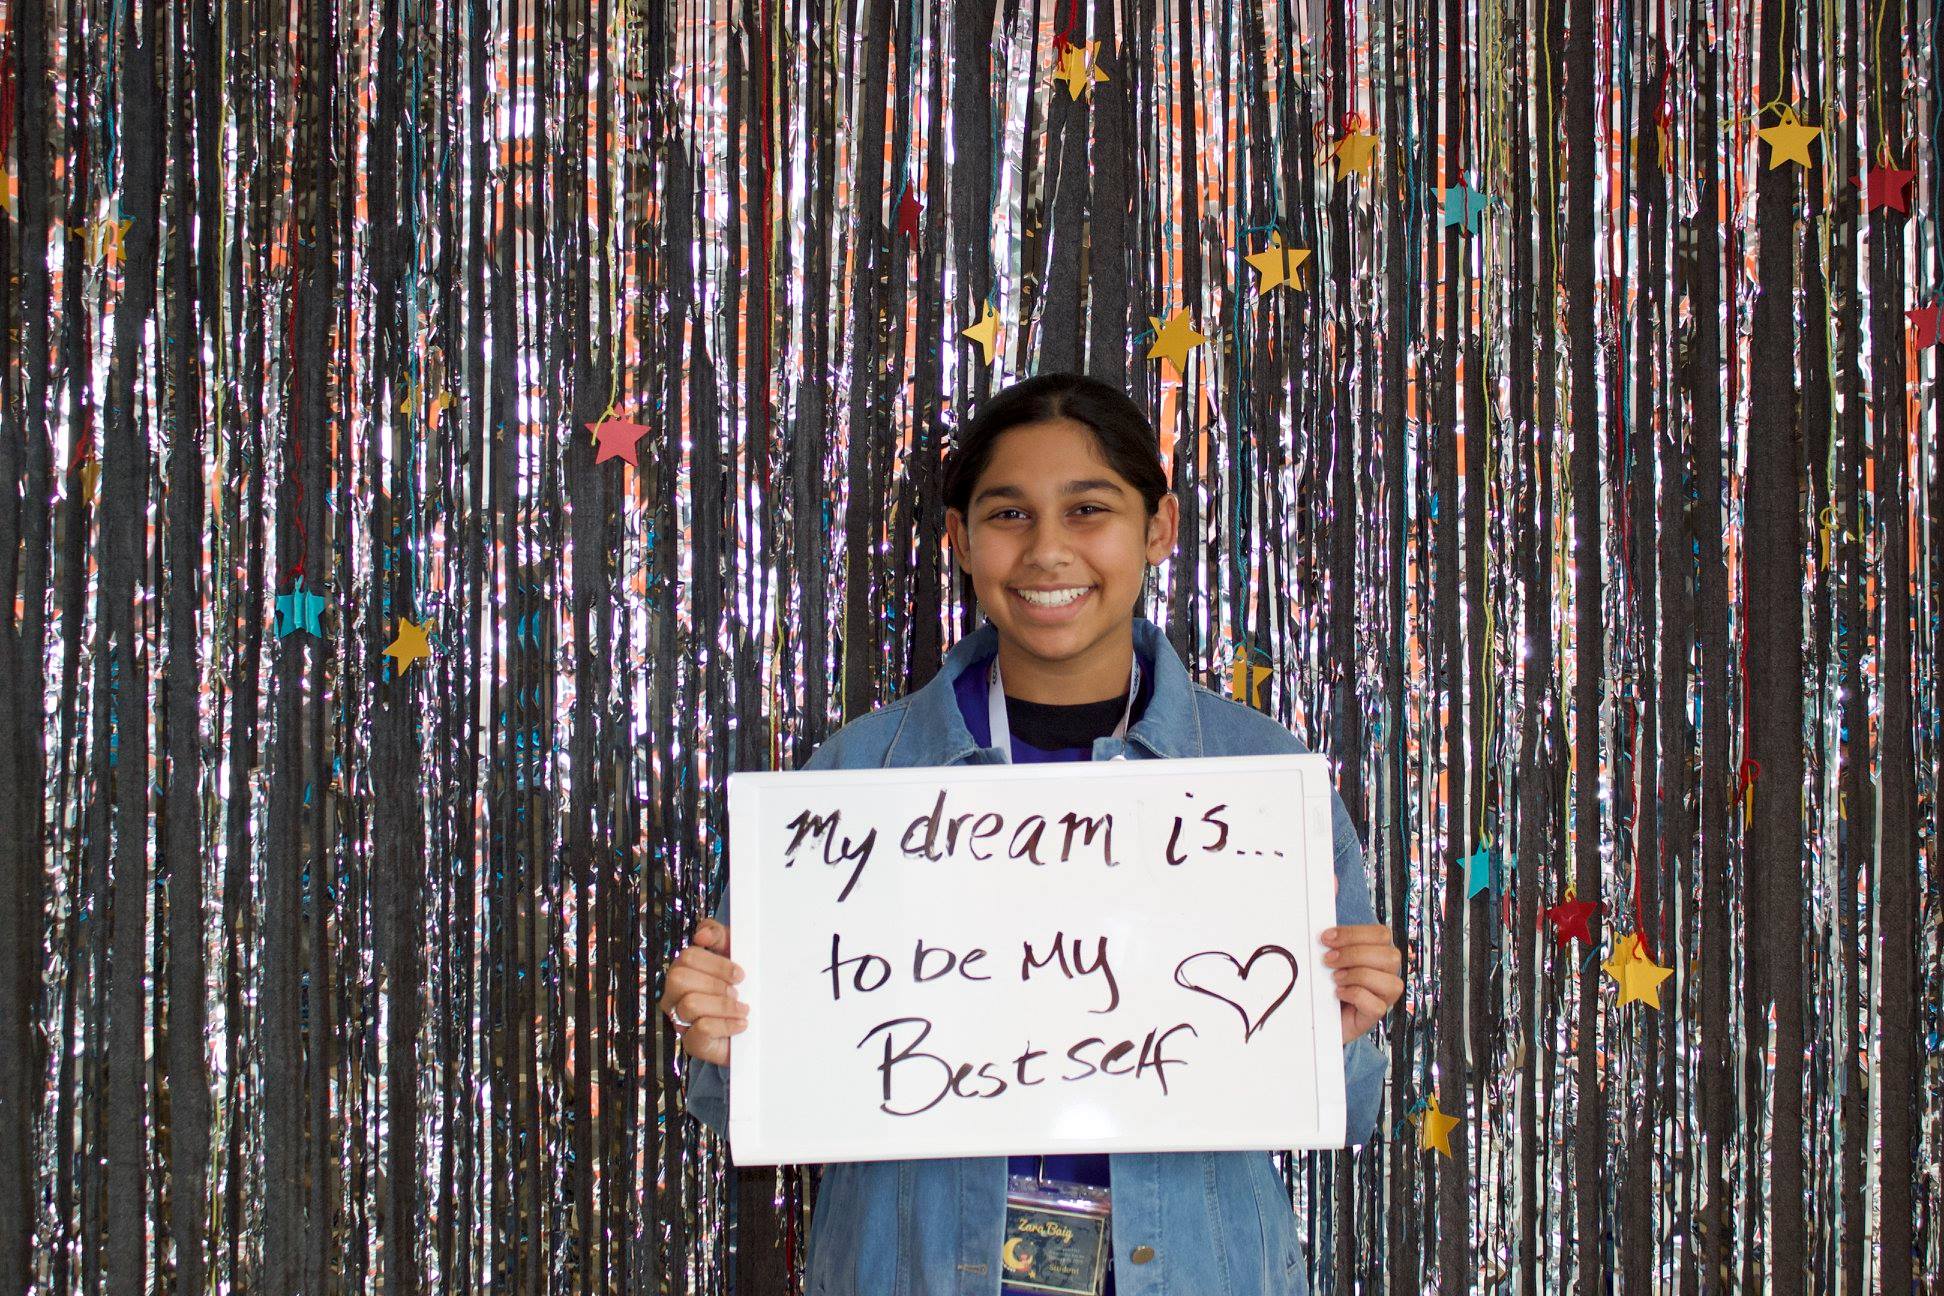 My dream is...
to be My
Best self
Zara Baig
Student